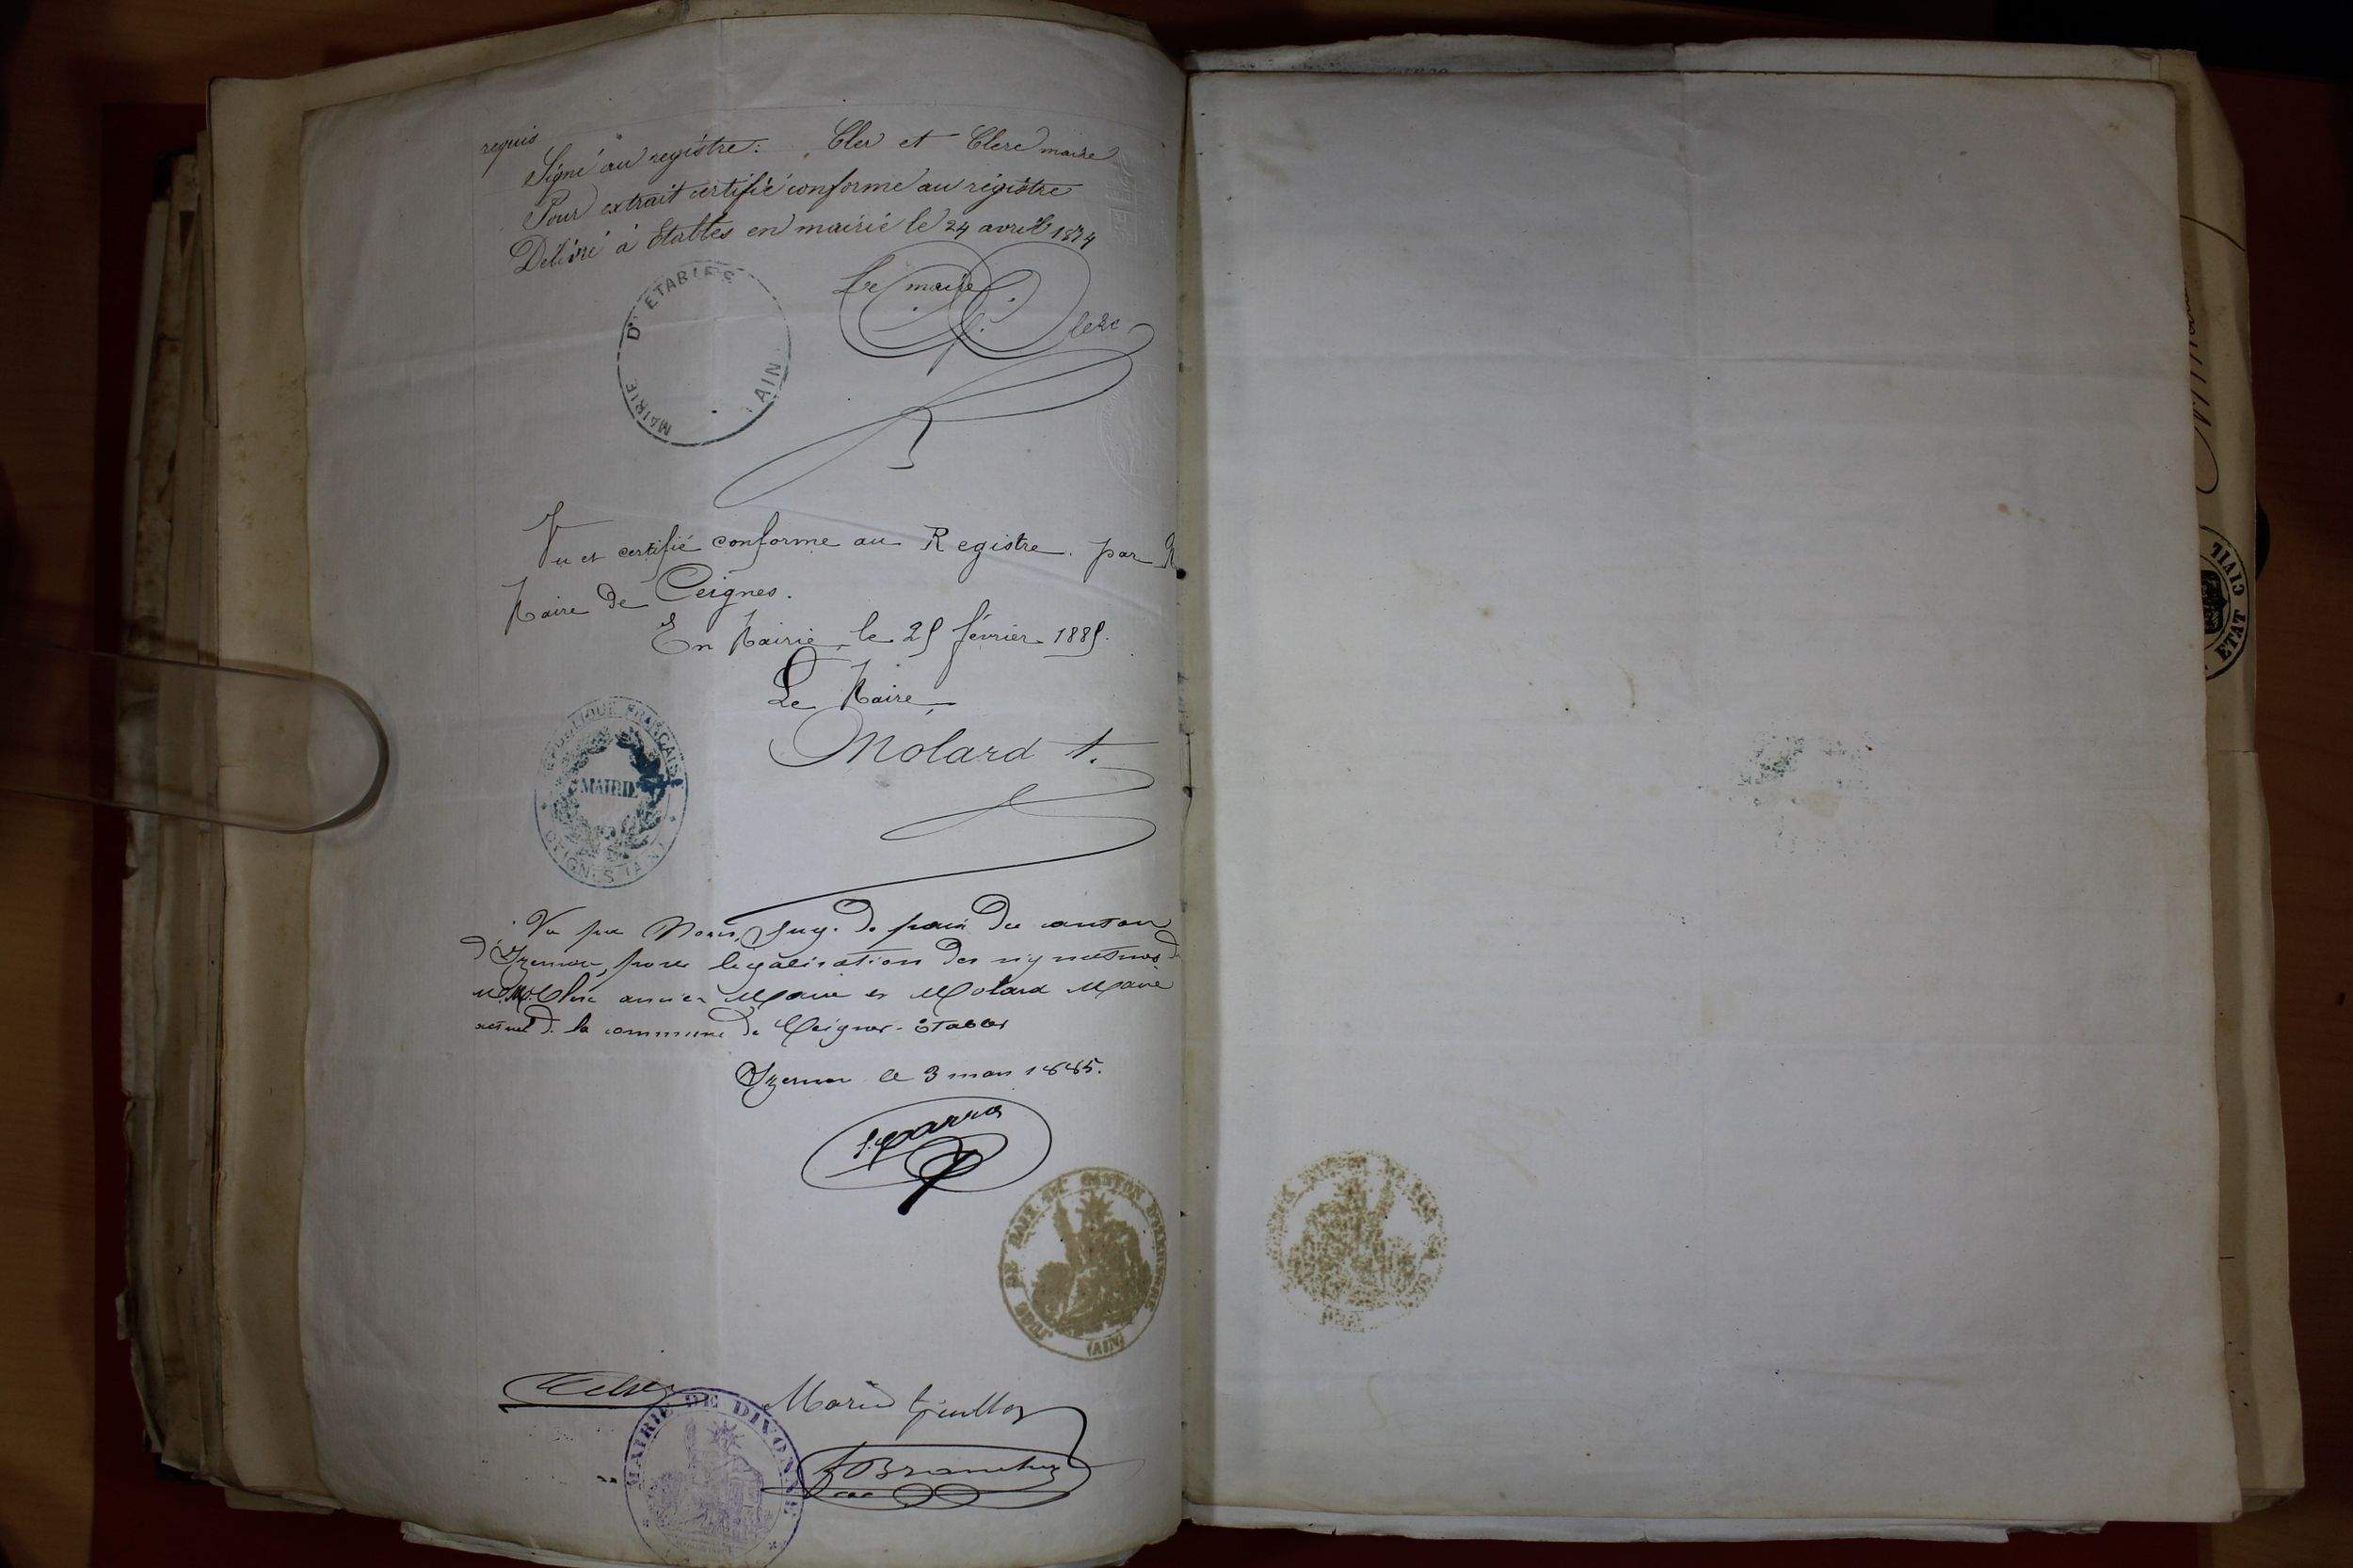 requis
Signé au registre: Cler et Clerc maire
Pour extrait certifié conforme au régistre
Délivré à Etables en mairie le 24 avril 1874
Le maire
Clerc
MAIRIE D'ETABLES
AIN
Vu et certifié conforme au Registre. par
Maire de Ceignes.
En Mairie, le 25 février 1885.
Le Maire,
Molard
RÉPUBLIQUE FRANÇAISE
MAIRIE
CEIGNES (AIN)
Vu par Nous, Juge de paix du canton
d'Izernore, pour légalisation des signatures de
M.M. Clerc ancien Maire et Molard Maire
actuel de la commune de Ceignes-Etables
Izernore le 3 mars 1885.
JUGE DE PAIX DU CANTON D'IZERNORE
(AIN)
Marie
MAIRIE DE DIVONNE
ETAT CIVIL